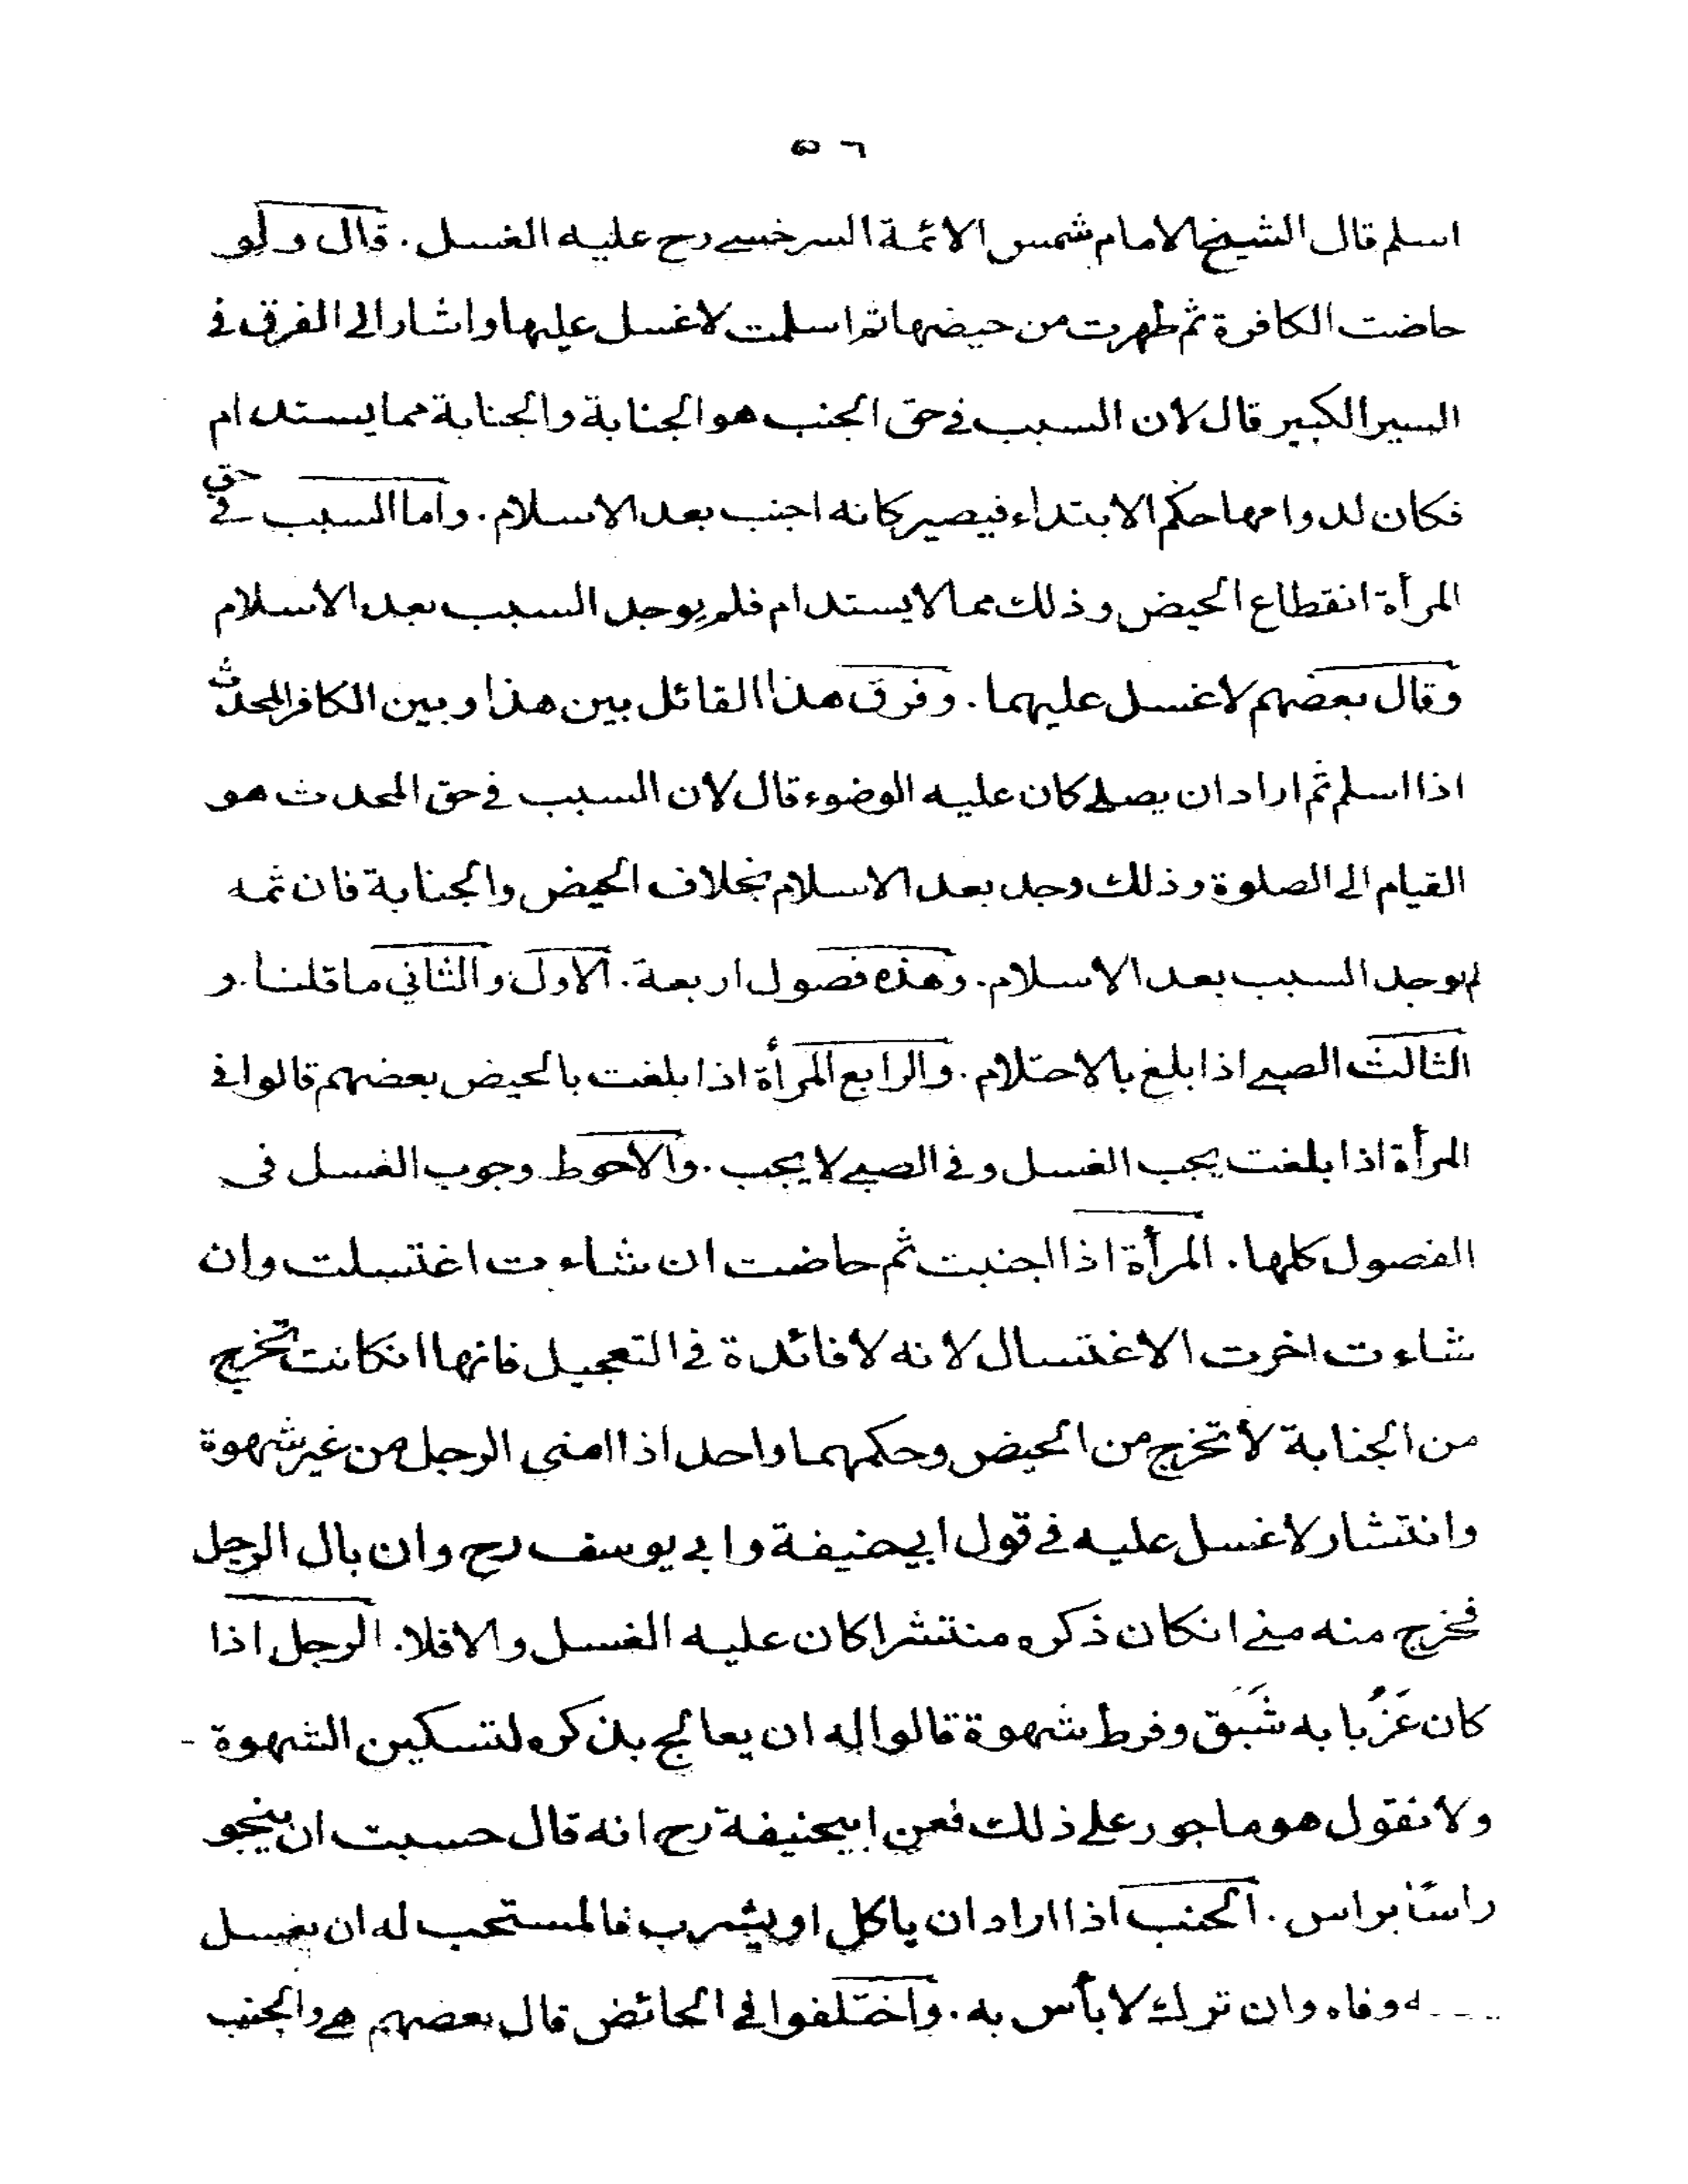 ٥٦
اسلم قال الشيخ الامام شمس الائمة السرخسے رح عليه الغسل . قال ولو
حاضت الكافرة ثم طهرت من حيضها ثم اسلمت لاغسل عليها واشار الى الفرق في
السير الكبير قال لان السبب في حق الجنب هو الجنابة والجنابة مما يستدام
فكان لدوامها حكم الابتداء فيصير كانه اجنب بعد الاسلام . واما السبب في حق
المرأة انقطاع الحيض وذلك مما لا يستدام فلم يوجد السبب بعد الاسلام
وقال بعضهم لاغسل عليهما . وفرق هذا القائل بين هذا وبين الكافر المحدث
اذا اسلم ثم اراد ان يصلے كان عليه الوضوء قال لان السبب في حق المحدث هو
القيام الى الصلوة وذلك وجد بعد الاسلام بخلاف الحيض والجنابة فان ثمه
لم يوجد السبب بعد الاسلام . وهذه فصول اربعة . الاول والثاني ما قلنا . و
الثالث الصبے اذا بلغ بالاحتلام . والرابع المرأة اذا بلغت بالحيض بعضهم قالوا في
المرأة اذا بلغت يجب الغسل وفي الصبے لا يجب . والاحوط وجوب الغسل فى
الفصول كلها . المرأة اذا اجنبت ثم حاضت ان شاءت اغتسلت وان
شاءت اخرت الاغتسال لانه لا فائدة في التعجيل فانها انكانت تخرج
من الجنابة لا تخرج من الحيض وحكمهما واحد اذا امنى الرجل من غير شهوة
وانتشار لاغسل عليه في قول ابيحنيفة وابي يوسف رح وان بال الرجل
فخرج منه منے انكان ذكره منتشرا كان عليه الغسل والا فلا . الرجل اذا
كان عَزُبا به شَبَق وفرط شهوة قالوا له ان يعالج بذكره لتسكين الشهوة
ولا نقول هو ماجور علے ذلك فعن ابيحنيفة رح انه قال حسبت ان ينجو
راسًا براس . الجنب اذا اراد ان ياكل او يشرب فالمستحب له ان يغسل
وفاه وان ترك لا بأس به . واختلفوا في الحائض قال بعضهم هے والجنب